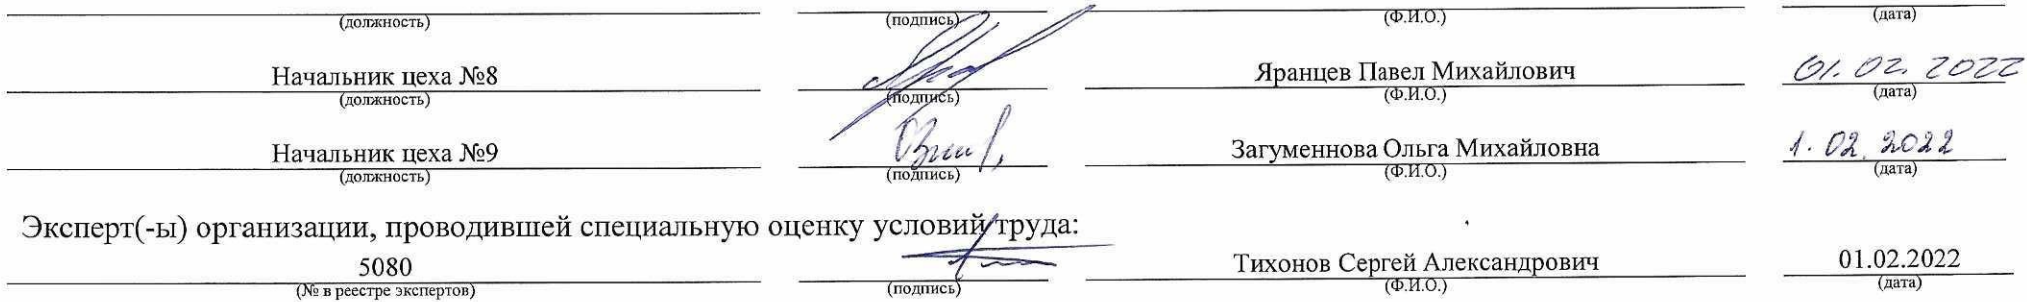 (должность) (подпись) (Ф.И.О.) (дата)
Начальник цеха №8 Яранцев Павел Михайлович 01.02.2022
(должность) (подпись) (Ф.И.О.) (дата)
Начальник цеха №9 Загуменнова Ольга Михайловна 1.02.2022
(должность) (подпись) (Ф.И.О.) (дата)
Эксперт(-ы) организации, проводившей специальную оценку условий труда:
5080 Тихонов Сергей Александрович 01.02.2022
(№ в реестре экспертов) (подпись) (Ф.И.О.) (дата)